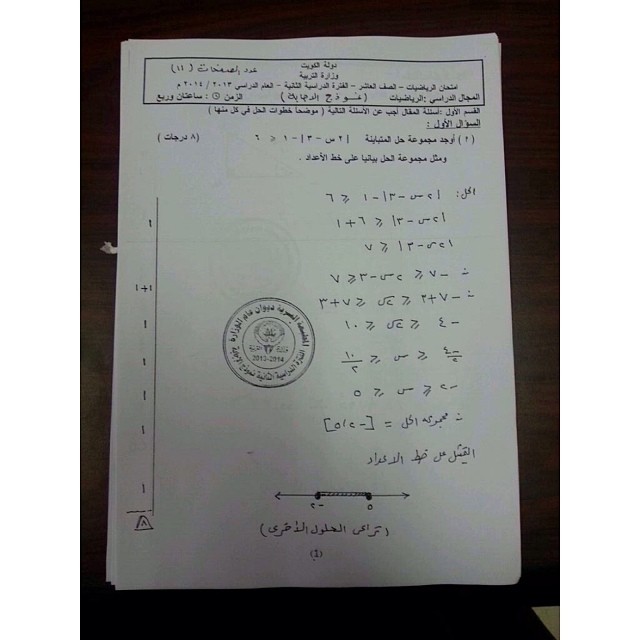 دولة الكويت
وزارة التربية
عدد الصفحات (١١)
امتحان الرياضيات – الصف العاشر – الفترة الدراسية الثانية – العام الدراسي ٢٠١٣ / ٢٠١٤ م
المجال الدراسي : الرياضيات ( نموذج الإجابة ) الزمن : ساعتان وربع
القسم الأول : أسئلة المقال أجب عن الأسئلة التالية ( موضحا خطوات الحل في كل منها )
السؤال الأول :
( ١ ) أوجد مجموعة حل المتباينة | ٢ س – ٣ | – ١ ≤ ٦ ( ٨ درجات )
ومثل مجموعة الحل بيانيا على خط الأعداد .
الحل: | ٢س – ٣ | – ١ ≥ ٦
| ٢س – ٣ | ≥ ٦ + ١ ١
| ٢س – ٣ | ≥ ٧
∴ –٧ ≥ ٢س – ٣ ≥ ٧ ١+١
∴ –٧ + ٣ ≥ ٢س ≥ ٧ + ٣
–٤ ≥ ٢س ≥ ١٠ ١
–٤/٢ ≥ س ≥ ١٠/٢ ١
–٢ ≥ س ≥ ٥ ١
∴ مجموعة الحل = [–٢ ، ٥] ١
التمثيل على خط الأعداد
١
–٢ ٥
٨
( تراعى الحلول الأخرى )
(١)
المطبعة السرية ديوان عام الوزارة
2013-2014
الفترة الدراسية الثانية نموذج الإجابة